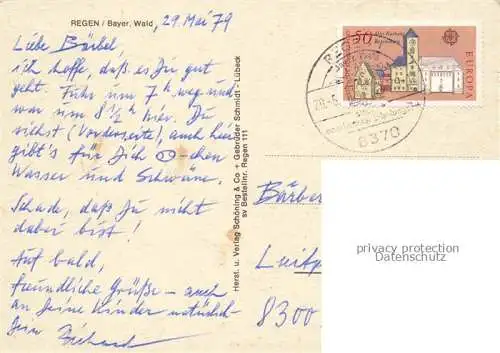 REGEN / Bayer. Wald
29. Mai 79
Liebe Bärbel,
ich hoffe, daß es Dir gut
geht. Fuhr um 7 h weg und
war um 8 1/2 h hier. Du
siehst (Vorderseite), auch hier
gibt's für Dich -chen
Wasser und Schwäne.
Schade, daß Du nicht
dabei bist!
Auf bald,
freundliche Grüße - auch
an Deine Kinder natürlich
Dein Richard
Herst. u. Verlag Schöning & Co + Gebrüder Schmidt · Lübeck
sv Bestellnr. Regen 111
50
Altes Rathaus
Regensburg
EUROPA
8370
Bärbel
Luitp
8300
privacy protection
Datenschutz